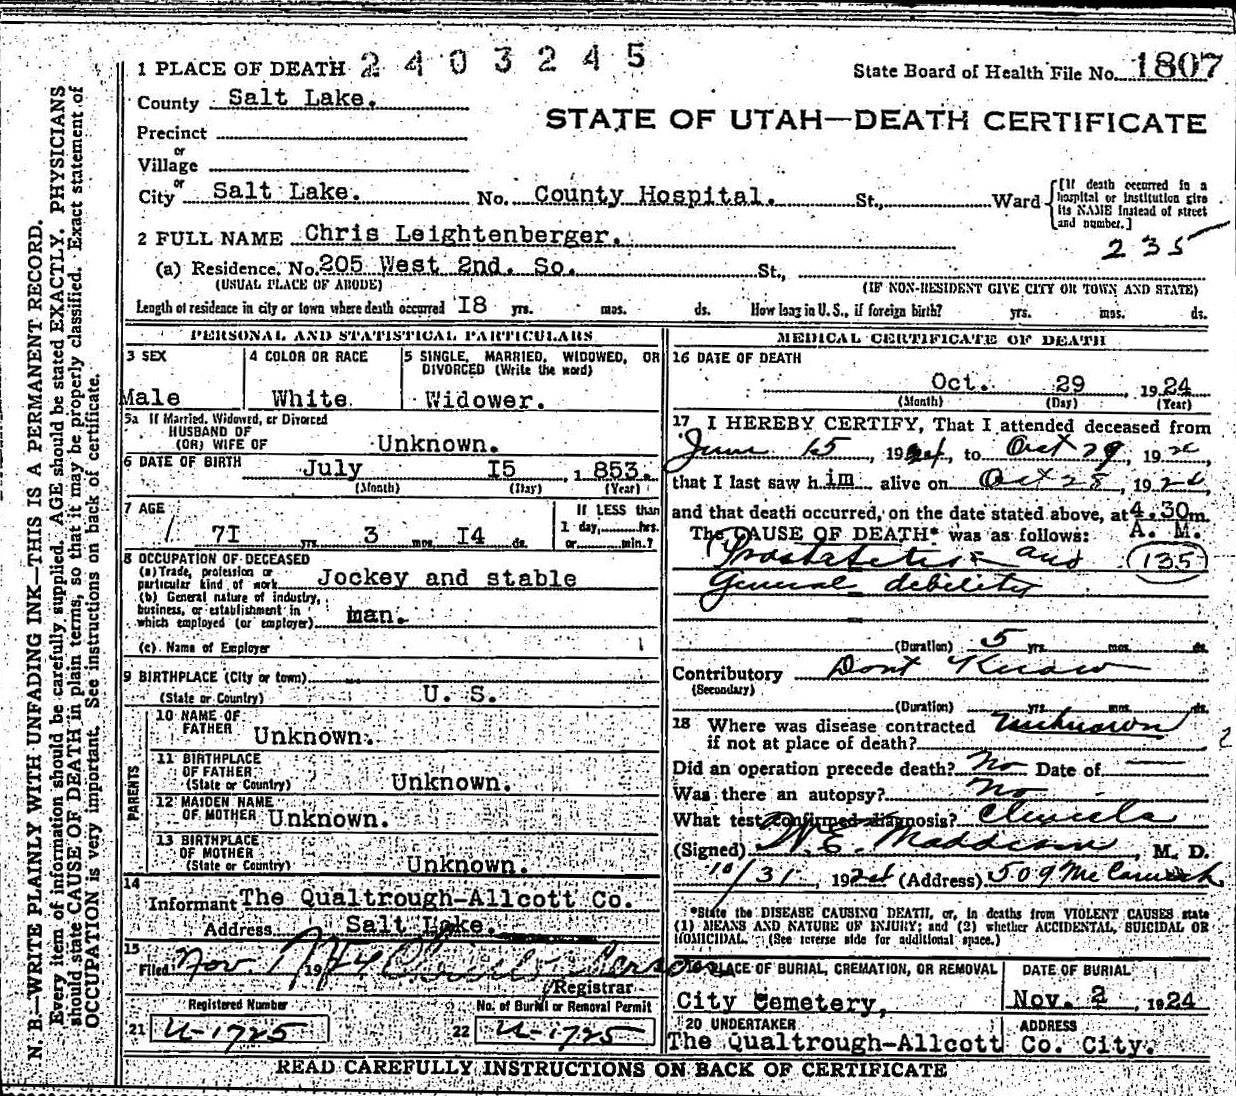 1 PLACE OF DEATH 2403245
State Board of Health File No. 1807
County Salt Lake.
STATE OF UTAH—DEATH CERTIFICATE
Precinct
or
Village
or
City Salt Lake. No. County Hospital. St., Ward
[If death occurred in a
hospital or institution give
its NAME instead of street
and number.]
2 FULL NAME Chris Leightenberger.
235
(a) Residence. No. 205 West 2nd. So. St.,
(USUAL PLACE OF ABODE) (IF NON-RESIDENT GIVE CITY OR TOWN AND STATE)
Length of residence in city or town where death occurred I8 yrs. mos. ds. How long in U. S., if foreign birth? yrs. mos. ds.
PERSONAL AND STATISTICAL PARTICULARS
3 SEX
Male
4 COLOR OR RACE
White
5 SINGLE, MARRIED, WIDOWED, OR
DIVORCED (Write the word)
Widower.
5a If Married, Widowed, or Divorced
HUSBAND OF
(OR) WIFE OF Unknown.
6 DATE OF BIRTH July I5 , 1853.
(Month) (Day) (Year)
7 AGE
7I yrs. 3 mos. I4 ds.
If LESS than
1 day, hrs.
or min.?
8 OCCUPATION OF DECEASED
(a) Trade, profession or
particular kind of work Jockey and stable
(b) General nature of industry,
business, or establishment in
which employed (or employer) man.
(c) Name of Employer
9 BIRTHPLACE (City or town)
(State or Country) U. S.
PARENTS
10 NAME OF
FATHER Unknown.
11 BIRTHPLACE
OF FATHER
(State or Country) Unknown.
12 MAIDEN NAME
OF MOTHER Unknown.
13 BIRTHPLACE
OF MOTHER
(State or Country) Unknown.
14
Informant The Qualtrough-Allcott Co.
Address Salt Lake.
15
Filed Nov. 1 1924
Registrar
Registered Number
21 U-1725
No. of Burial or Removal Permit
22 U-1725
MEDICAL CERTIFICATE OF DEATH
16 DATE OF DEATH
Oct. 29 , 1924
(Month) (Day) (Year)
17 I HEREBY CERTIFY, That I attended deceased from
June 15, 1924, to Oct 29, 1924,
that I last saw him alive on Oct 28, 1924,
and that death occurred, on the date stated above, at 4.30m.
The CAUSE OF DEATH* was as follows: A. M.
Prostatetis and 135
General debility
(Duration) 5 yrs. mos. ds.
Contributory Dont Know
(Secondary)
(Duration) yrs. mos. ds.
18 Where was disease contracted Unknown
if not at place of death?
2
Did an operation precede death? No Date of —
Was there an autopsy? No
What test confirmed diagnosis?
(Signed) W. E. Maddison, M. D.
10/31, 1924 (Address) 509 McCornick
*State the DISEASE CAUSING DEATH, or, in deaths from VIOLENT CAUSES state
(1) MEANS AND NATURE OF INJURY; and (2) whether ACCIDENTAL, SUICIDAL OR
HOMICIDAL. (See reverse side for additional space.)
19 PLACE OF BURIAL, CREMATION, OR REMOVAL
City Cemetery,
DATE OF BURIAL
Nov. 2 , 1924
20 UNDERTAKER
The Qualtrough-Allcott
ADDRESS
Co. City.
READ CAREFULLY INSTRUCTIONS ON BACK OF CERTIFICATE
N. B.—WRITE PLAINLY WITH UNFADING INK—THIS IS A PERMANENT RECORD.
Every item of information should be carefully supplied. AGE should be stated EXACTLY. PHYSICIANS
should state CAUSE OF DEATH in plain terms, so that it may be properly classified. Exact statement of
OCCUPATION is very important. See instructions on back of certificate.